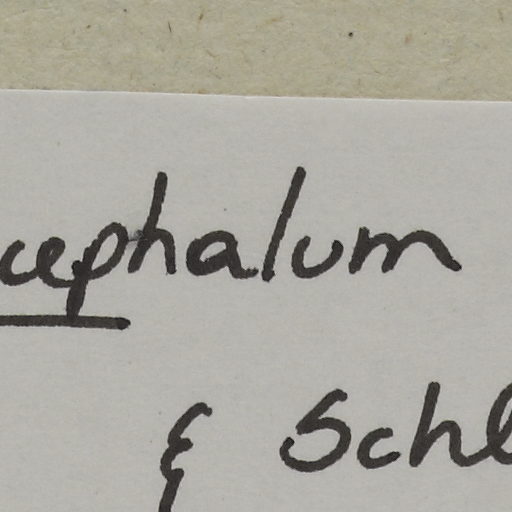 cephalum
& Schl